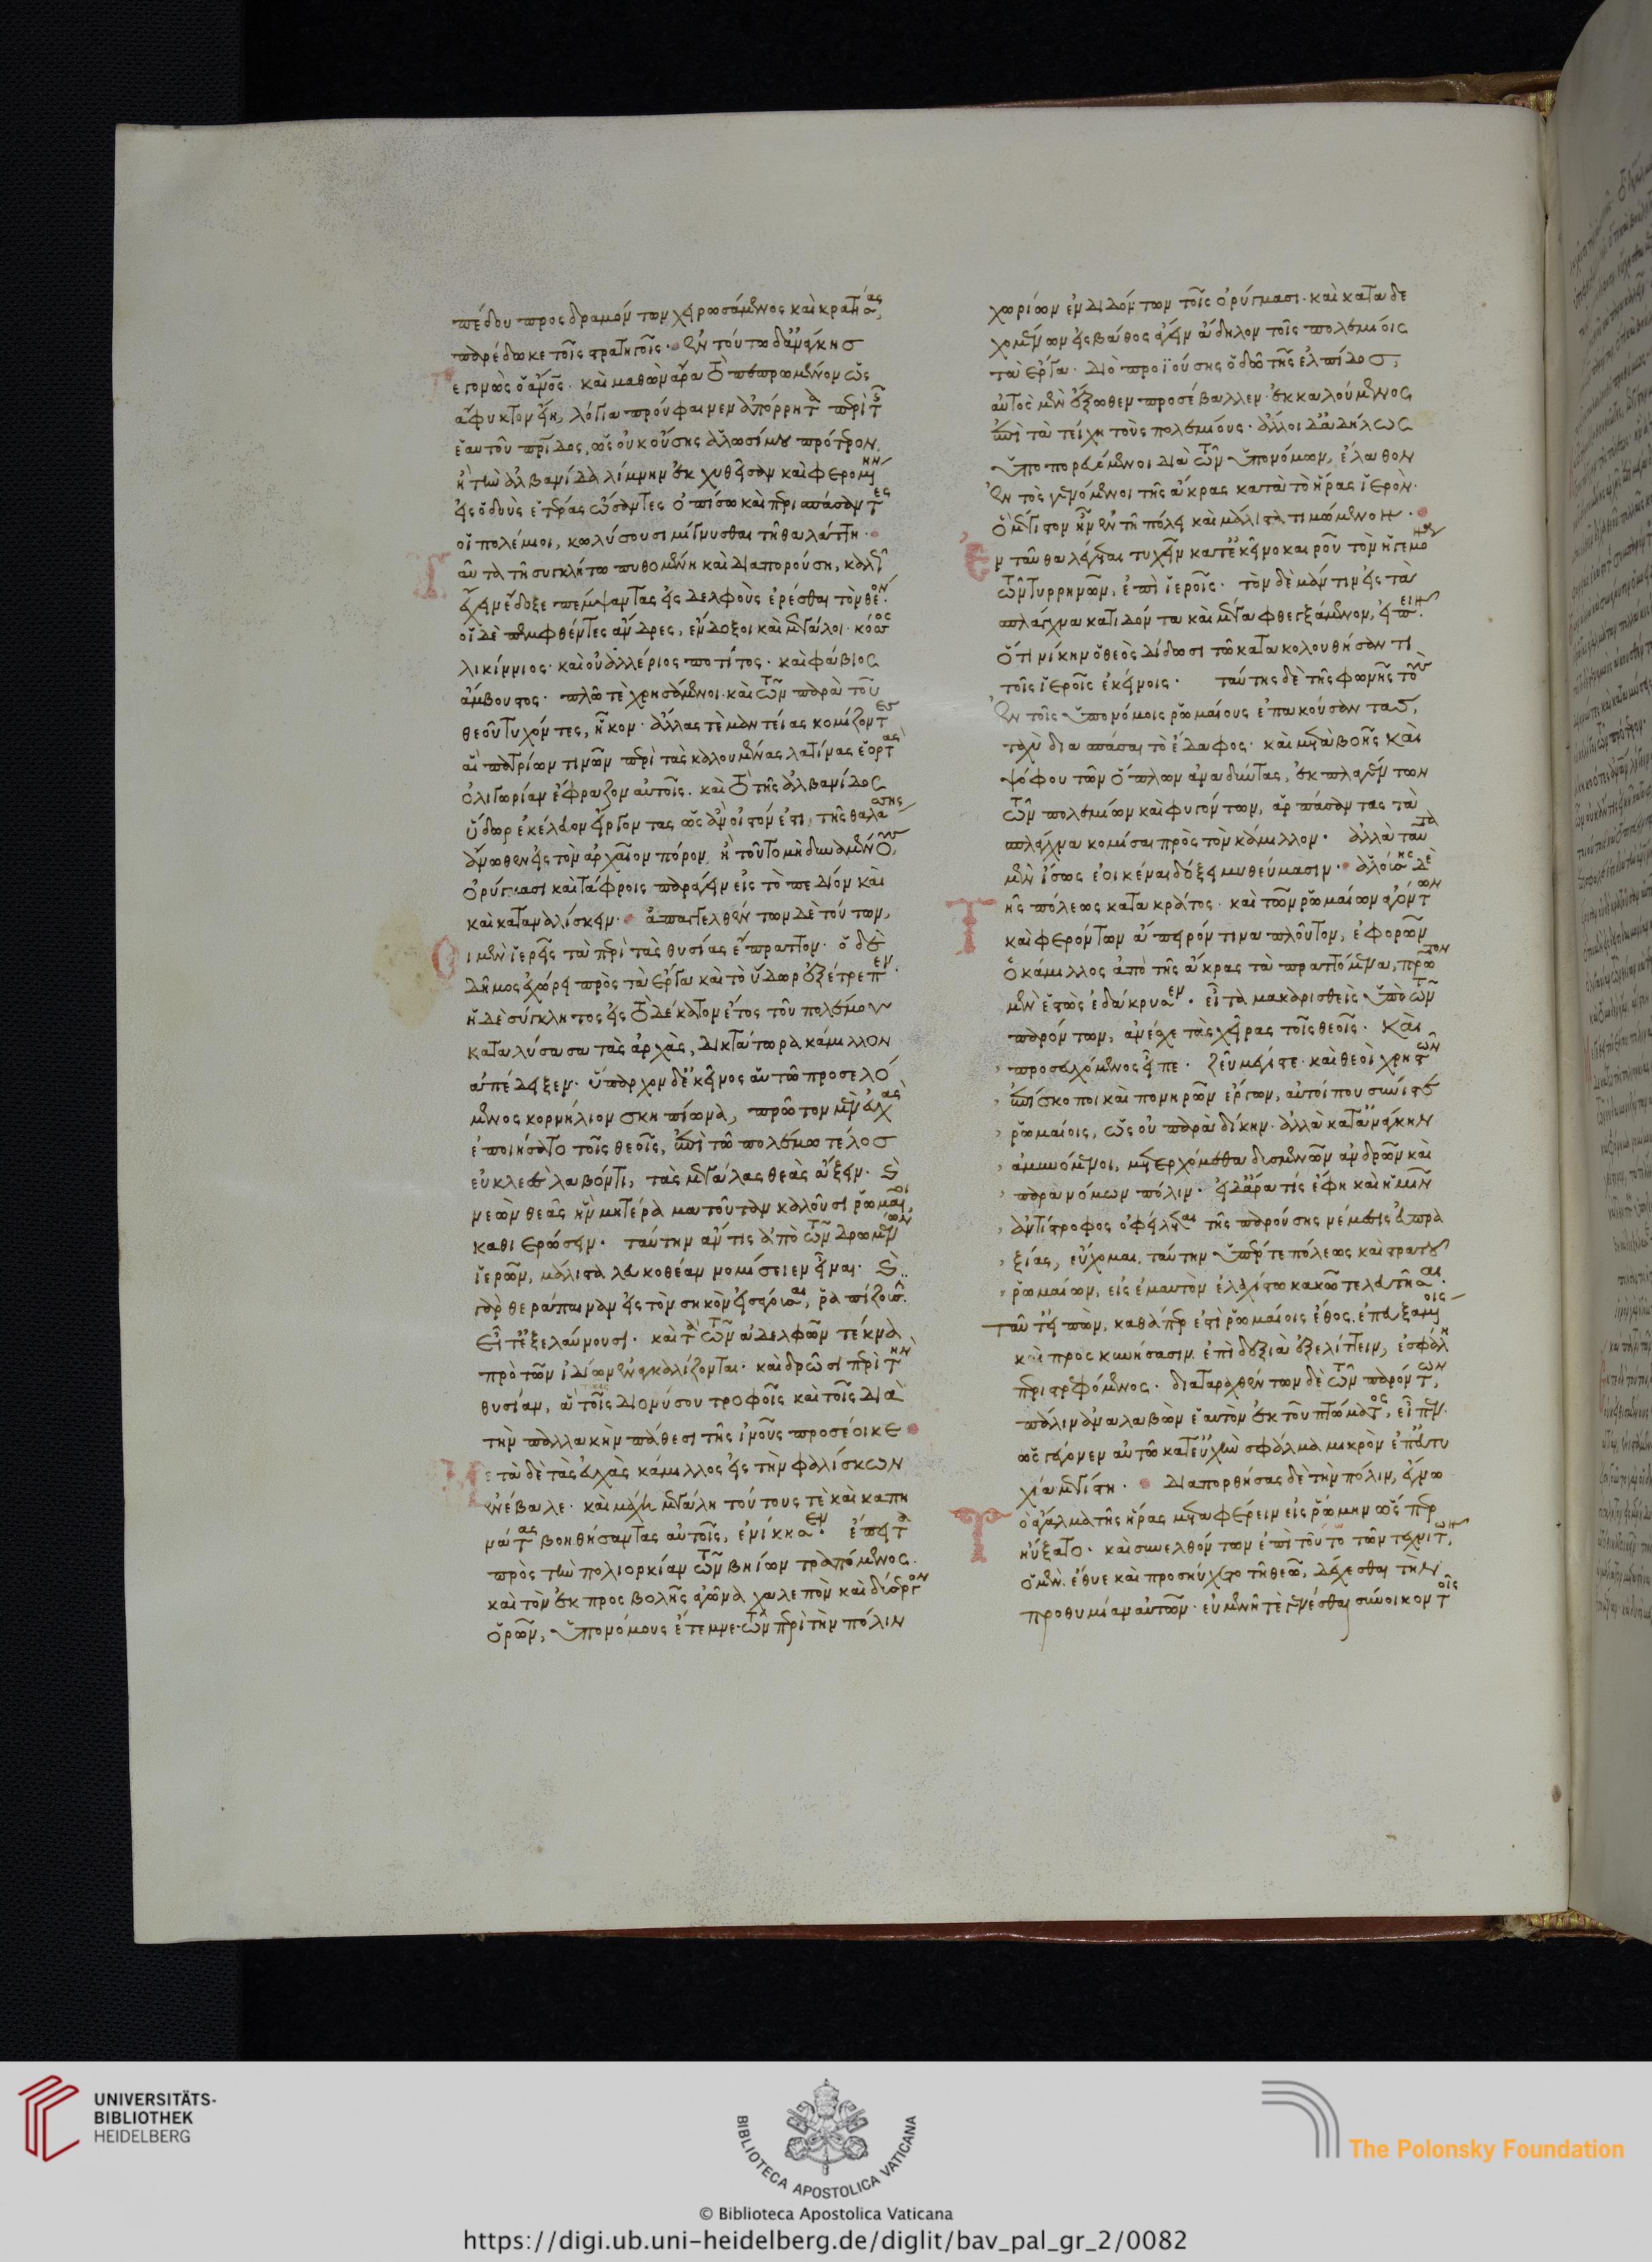 πέδου προσδραμόντων χειρωσάμενος καὶ κρατήσας,
παρέδωκε τοῖς στρατηγοῖς· ἐν τούτω δ' ἀνάγκης
γεγονὼς ὁ ἄνθρωπος· καὶ μαθὼν ἄρα τὸ πεπρωμένον ὡς
ἄφυκτον εἴη, λόγια προύφαινεν ἀπόρρητα περὶ τῆς
ἑαυτοῦ πατρίδος, ὡς οὐκ οὔσης ἁλωσίμου πρότερον,
ἢ τὴν ἀλβανίδα λίμνην ἐκχυθεῖσαν καὶ φερομένην
εἰς ὁδοὺς ἑτέρας ὤσαντες ὀπίσω καὶ περισπάσαντες
οἱ πολέμιοι, κωλύσουσι μίγνυσθαι τῆ θαλάττη·
Ταῦτα τῆ συγκλήτω πυθομένη καὶ διαπορούση, καλῶς
ἔχειν ἔδοξε πέμψαντας εἰς δελφοὺς ἐρέσθαι τὸν θεόν·
οἱ δὲ πεμφθέντες ἄνδρες, ἔνδοξοι καὶ μεγάλοι· κόσσος
λικίννιος· καὶ οὐαλλέριος ποτίτος· καὶ φάβιος
ἄμβουστος· πλῶ τὲ χρησάμενοι· καὶ τῶν παρὰ τοῦ
θεοῦ τυχόντες, ἧκον· ἄλλας τὲ μαντείας κομίζοντες
αἳ πατρίων τινῶν περὶ τὰς καλουμένας λατίνας ἑορτὰς
ὀλιγωρίαν ἔφραζον αὐτοῖς· καὶ τὸ τῆς ἀλβανίδος
ὕδωρ ἐκέλευον εἴργοντας ὡς ἀνοιστόν ἐστι, τῆς θαλάσσης
ἄνωθεν εἰς τὸν ἀρχαῖον πόρον, ἢ τοῦτο μὴ δυναμένων
ὀρύγμασι καὶ τάφροις παράγειν εἰς τὸ πεδίον καὶ
καὶ καταναλίσκειν· ἀπαγγελθέντων δὲ τούτων,
Οἱ μὲν ἱερεῖς τὰ περὶ τὰς θυσίας ἔπραττον· ὁ δὲ
δῆμος ἐχώρει πρὸς τὰ ἔργα καὶ τὸ ὕδωρ ἐξέτρεπεν·
ἡ δὲ σύγκλητος εἰς τὸ δέκατον ἔτος τοῦ πολέμου
καταλύσασα τὰς ἀρχὰς, δικτάτωρα κάμιλλον
ἀπέδειξεν· ἵππαρχον δ' ἐκεῖνος αὑτῶ προσελό
μενος κορνήλιον σκηπίωνα, πρῶτον μὲν εὐχὰς
ἐποιήσατο τοῖς θεοῖς, ἐπὶ τῶ πολέμω τέλος
εὐκλεὲς λαβόντι, τὰς μεγάλας θέας ἄξειν· καὶ
νεὼν θεᾶς ἣν μητέρα ματοῦταν καλοῦσι ῥωμαῖοι,
καθιερώσειν· ταύτην ἄν τις ἀπὸ τῶν δρωμένων
ἱερῶν, μάλιστα λευκοθέαν νομίσειεν εἶναι· καὶ
γὰρ θεράπαιναν εἰς τὸν σηκὸν εἰσάγουσαι, ῥαπίζουσιν·
εἶτ' ἐξελαύνουσι· καὶ τὰ τῶν ἀδελφῶν τέκνα
πρὸ τῶν ἰδίων ἐναγκαλίζονται· καὶ δρῶσι περὶ τὴν
θυσίαν, ἃ τοῖς διονύσου τροφοῖς καὶ τοῖς διὰ
τὴν παλλακὴν πάθεσι τῆς ἰνοῦς προσέοικε
Μετὰ δὲ τὰς εὐχὰς κάμιλλος εἰς τὴν φαλίσκων
ἐνέβαλε· καὶ μάχη μεγάλη τούτους τὲ καὶ καπη
νάτας βοηθήσαντας αὐτοῖς, ἐνίκησεν· ἔπειτα
πρὸς τὴν πολιορκίαν τῶν βηίων τραπόμενος·
καὶ τὸν ἐκ προσβολῆς ἀγῶνα χαλεπὸν καὶ δύσεργον
ὁρῶν, ὑπονόμους ἔτεμνε· τῶν περὶ τὴν πόλιν
χωρίων ἐνδιδόντων τοῖς ὀρύγμασι· καὶ καταδε
χομένων εἰς βάθος ἄγειν ἄδηλον τοῖς πολεμίοις
τὰ ἔργα· διὸ προϊούσης ὁδῶ τῆς ἐλπίδος,
αὐτὸς μὲν ἔξωθεν προσέβαλλεν· ἐκκαλούμενος
ἐπὶ τὰ τείχη τοὺς πολεμίους· ἄλλοι δ' ἀδήλως
ὑποπορευόμενοι διὰ τῶν ὑπονόμων, ἔλαθον
ἐντὸς γενόμενοι τῆς ἄκρας κατὰ τὸ ἥρας ἱερὸν·
ὃ μέγιστον ἦν ἐν τῆ πόλει καὶ μάλιστα τιμώμενον·
Ἐνταῦθα λέγεται τυχεῖν κατ' ἐκεῖνο καιροῦ τὸν ἡγεμόνα
τῶν τυρρηνῶν, ἐπὶ ἱεροῖς· τὸν δὲ μάντιν εἰς τὰ
σπλάγχνα κατιδόντα καὶ μέγα φθεγξάμενον, εἰπεῖν·
ὅτι νίκην ὁ θεὸς δίδωσι τῶ κατακολουθήσαντι
τοῖς ἱεροῖς ἐκείνοις· ταύτης δὲ τῆς φωνῆς τοὺς
ἐν τοῖς ὑπονόμοις ῥωμαίους ἐπακούσαντας,
ταχὺ διασπάσαι τὸ ἔδαφος· καὶ μετὰ βοῆς καὶ
ψόφου τῶν ὅπλων ἀναδύντας, ἐκπλαγέντων
τῶν πολεμίων καὶ φυγόντων, ἁρπάσαντας τὰ
σπλάγχνα κομίσαι πρὸς τὸν κάμιλλον· ἀλλὰ ταῦτα
μὲν ἴσως ἐοικέναι δόξει μυθεύμασιν· ἁλούσης δὲ
Τῆς πόλεως κατακράτος· καὶ τῶν ῥωμαίων ἀγόντων
καὶ φερόντων ἄπειρόν τινα πλοῦτον, ἐφορῶν
ὁ κάμιλλος ἀπὸ τῆς ἄκρας τὰ πραττόμενα, πρῶτον
μὲν ἑστὼς ἐδάκρυσεν· εἶτα μακαρισθεὶς ὑπὸ τῶν
παρόντων, ἀνέσχε τὰς χεῖρας τοῖς θεοῖς· καὶ
προσευχόμενος εἶπε· ζεῦ μέγιστε· καὶ θεοὶ χρηστῶν
ἐπίσκοποι καὶ πονηρῶν ἔργων, αὐτοί που σύνιστε
ῥωμαίοις, ὡς οὐ παρὰ δίκην· ἀλλὰ κατ' ἀνάγκην
ἀμυνόμενοι, μετερχόμεθα δυσμενῶν ἀνδρῶν καὶ
παρανόμων πόλιν· εἰ δ' ἄρα τίς ἔφη καὶ ἡμῖν
ἀντίστροφος ὀφείλεται τῆς παρούσης νέμεσις εὐπρα
ξίας, εὔχομαι, ταύτην ὑπέρ τε πόλεως καὶ στρατοῦ
ῥωμαίων, εἰς ἐμαυτὸν ἐλαχίστω κακῶ τελευτῆσαι·
ταῦτ' εἰπὼν, καθάπερ ἐστὶ ῥωμαίοις ἔθος, ἐπευξαμένοις
καὶ προσκυνήσασιν ἐπὶ δεξιὰ ἐξελίττειν, ἐσφάλη
περιστρεφόμενος· διαταραχθέντων δὲ τῶν παρόντων,
πάλιν ἀναλαβὼν ἑαυτὸν ἐκ τοῦ πτώματος, εἶπεν·
ὡς γέγονεν αὐτῶ κατ' εὐχὴν σφάλμα μικρὸν ἐπ' εὐτυ
χία μεγίστη· διαπορθήσας δὲ τὴν πόλιν, ἔγνω
Τὸ ἄγαλμα τῆς ἥρας μεταφέρειν εἰς ῥώμην ὥσπερ
ηὔξατο· καὶ συνελθόντων ἐπὶ τοῦτο τῶν τεχνιτῶν,
ὁ μὲν ἔθυε καὶ προσηύχετο τῆ θεῶ, δέχεσθαι τὴν
προθυμίαν αὐτῶν· εὐμενῆ τὲ γενέσθαι σύνοικον τοῖς
UNIVERSITÄTS-
BIBLIOTHEK
HEIDELBERG
BIBLIOTECA APOSTOLICA VATICANA
The Polonsky Foundation
© Biblioteca Apostolica Vaticana
https://digi.ub.uni-heidelberg.de/diglit/bav_pal_gr_2/0082